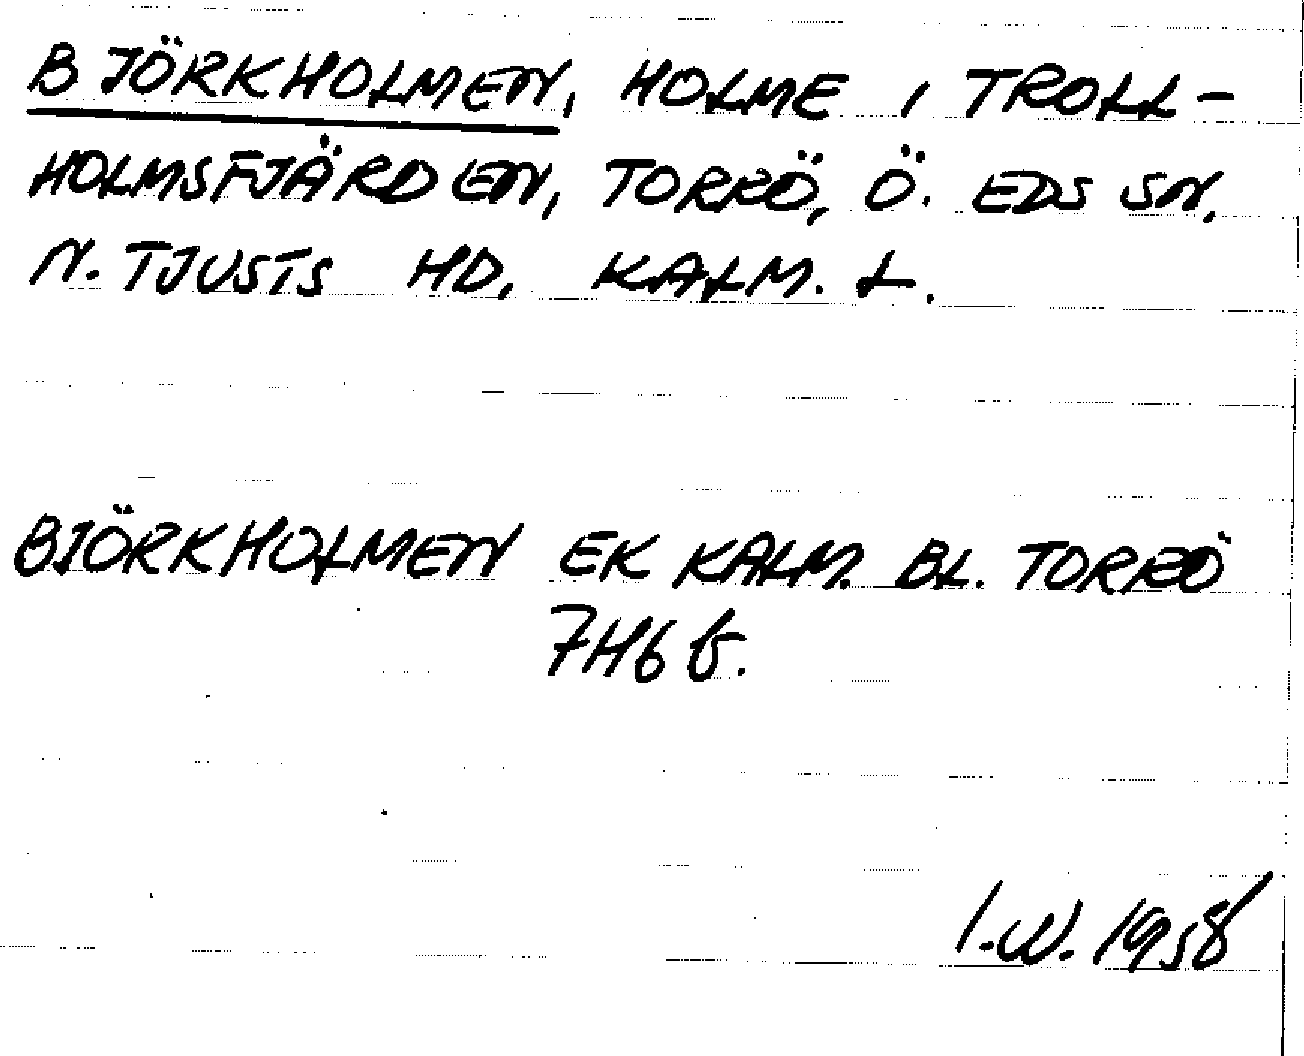 BJÖRKHOLMEN, HOLME I TROLL-
HOLMSFJÄRDEN, TORRÖ, Ö. EDS SN,
N. TJUSTS HD, KALM. L.
BJÖRKHOLMEN EK KALM. BL. TORRÖ
7H6 b.
I.W. 1958